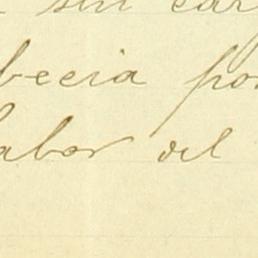 sin car
becia po
labor del